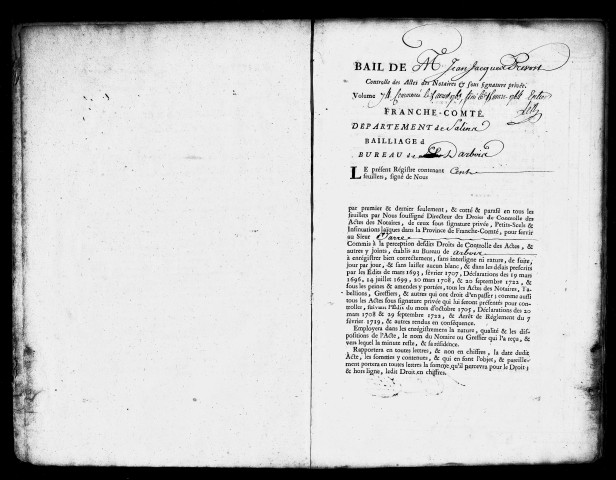 BAIL DE Mr. Jean Jacques Prevost
Controlle des Actes des Notaires & sous signature privée.
Volume 74 Commencé le
FRANCHE-COMTÉ.
DEPARTEMENT de Salins
BAILLIAGE d
BUREAU d'arbois
LE présent Régistre contenant Cent
feuillets, signé de Nous
par premier & dernier seulement, & cotté & parafé en tous les
feuillets par Nous soussigné Directeur des Droits de Controlle des
Actes des Notaires, de ceux sous signature privée, Petits-Scels &
Insinuations laïques dans la Province de Franche-Comté, pour servir
au Sieur
Commis à la perception desdits Droits de Controlle des Actes, &
autres y Joints, établis au Bureau de arbois
à enrégistrer bien correctement, sans interligne ni rature, de suite,
jour par jour, & sans laisser aucun blanc, & dans les délais prescrits
par les Edits de mars 1693, février 1707, Déclarations des 19 mars
1696, 14 juillet 1699, 20 mars 1708, & 20 septembre 1722, &
sous les peines & amendes y portées, tous les Actes des Notaires, Ta-
bellions, Greffiers, & autres qui ont droit d'en passer; comme aussi
tous les Actes sous signature privée qui lui seront présentés pour con-
troller, suivant l'Edit du mois d'octobre 1705, Déclarations des 20
mars 1708 & 29 septembre 1722, & Arrêt de Réglement du 7
février 1719, & autres rendus en conséquence.
Employera dans les enrégistremens la nature, qualité & les dis-
positions de l'Acte, le nom du Notaire ou Greffier qui l'a reçu, &
vers lequel la minute reste, & sa résidence.
Rapportera en toutes lettres, & non en chiffres, la date dudit
Acte, les sommes y contenues, & qui en sont l'objet, & pareille-
ment portera en toutes lettres la somme qu'il percevra pour le Droit;
& hors ligne, ledit Droit en chiffres.